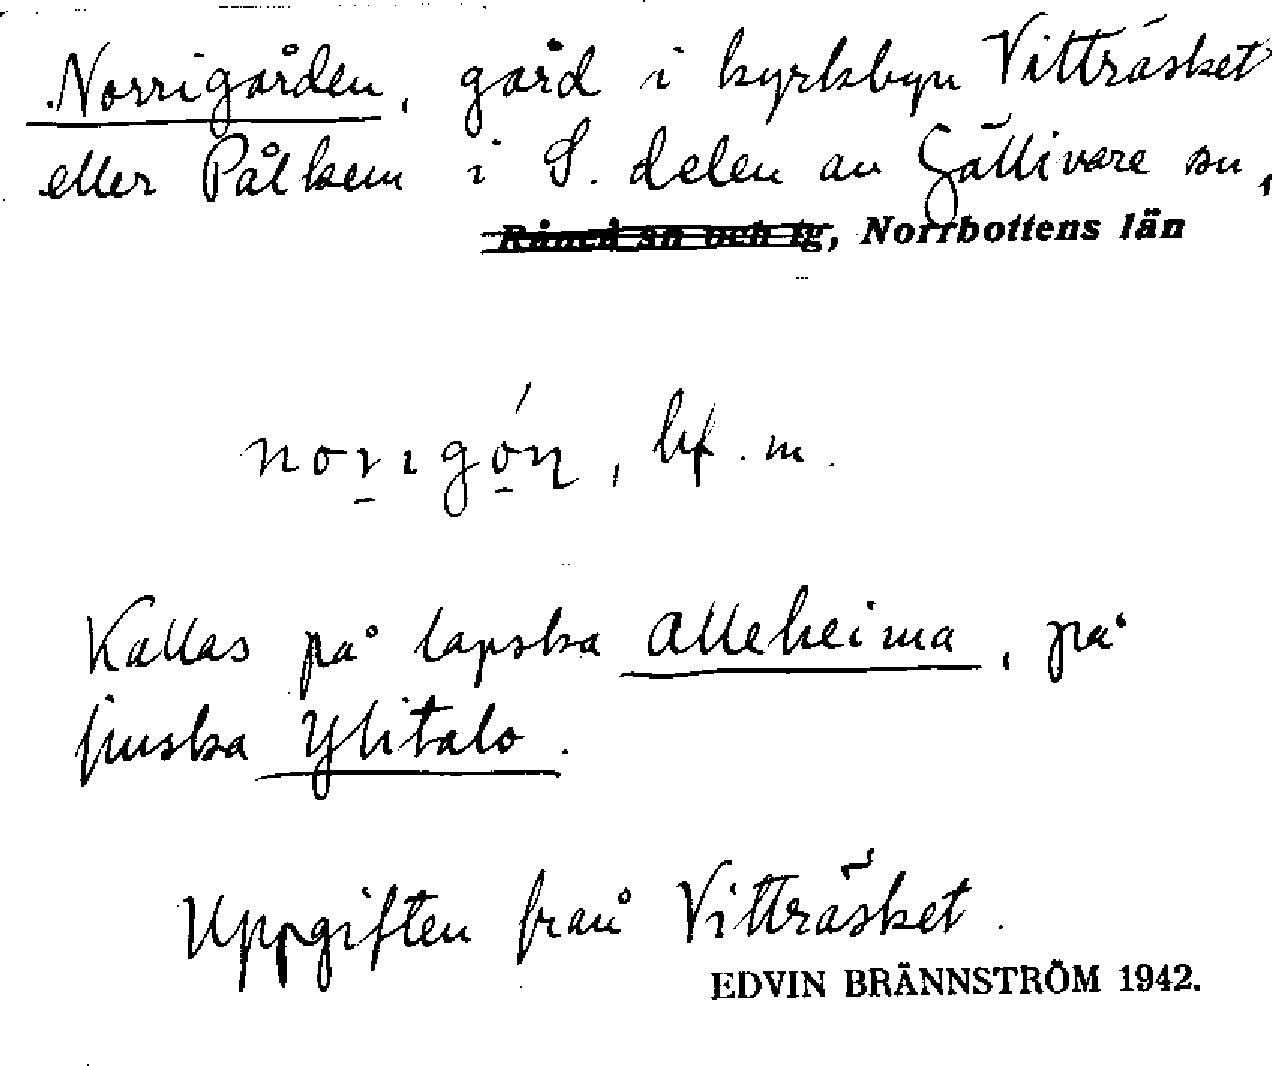 Norrigården, gård i kyrkbyn Vitträsket
eller Pålkem i S. delen av Gällivare sn,
Råneå sn och tg, Norrbottens län
norıgó̱n, bf. m.
Kallas på lapska Alleheima, på
finska Ylitalo.
Uppgiften från Vitträsket.
EDVIN BRÄNNSTRÖM 1942.